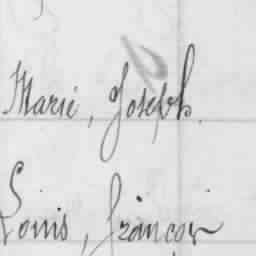 Marie, Joseph.
Louis, françois